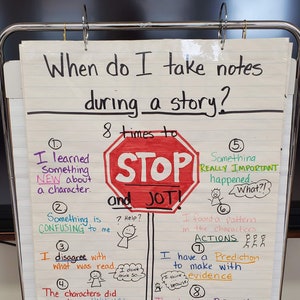 When do I take notes
during a story?
8 times to
STOP
and JOT!
①
I learned
something
NEW about
a character
②
Something is
CONFUSING to me
Help?
③
I disagree with
what was read
I don't
think so
④
The characters did
⑤
Something
REALLY IMPORTANT
happened
What?!
⑥
I found a pattern
in the characters
ACTIONS
⑦
I have a Prediction
to make with
evidence
I think
⑧